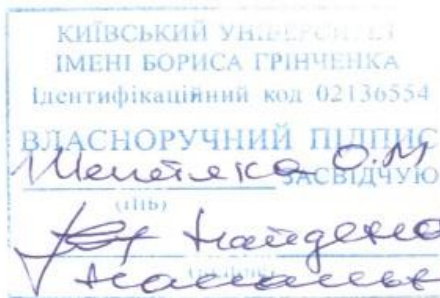 КИЇВСЬКИЙ УНІВЕРСИТЕТ
ІМЕНІ БОРИСА ГРІНЧЕНКА
Ідентифікаційний код 02136554
ВЛАСНОРУЧНИЙ ПІДПИС
О.М
ЗАСВІДЧУЮ
(ПІБ)